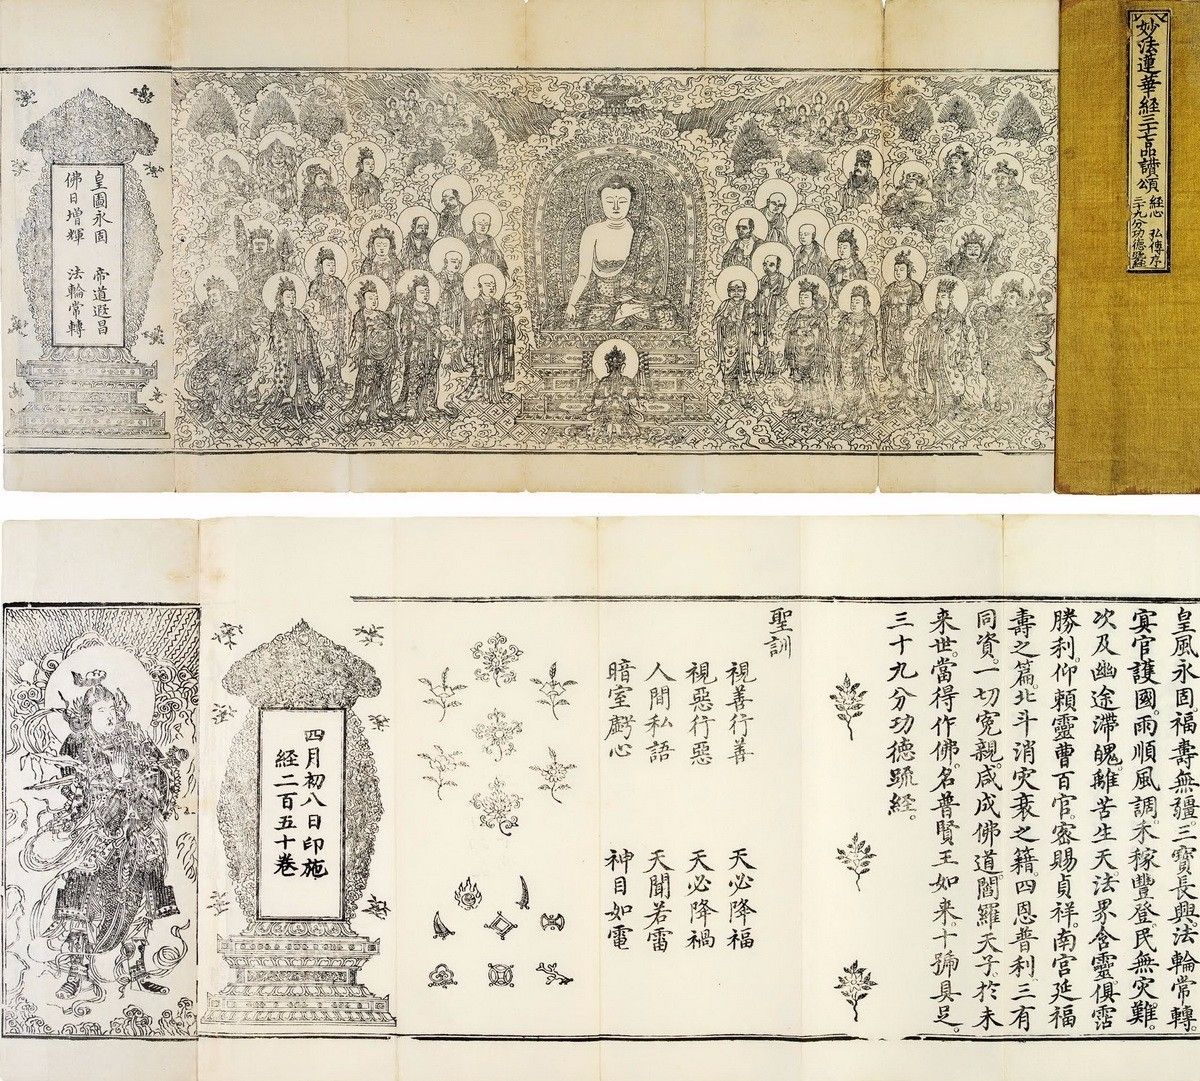 妙法蓮華経三十七品讃頌
経心 弘傳序
三十九分功德疏
皇圖永固 帝道遐昌
佛日增輝 法輪常轉
皇風永固。福壽無疆。三寶長興。法輪常轉。
冥官護國。雨順風調。禾稼豐登。民無灾難。
次及幽途滯魄。離苦生天。法界含靈。俱霑
勝利。仰頼靈曹百官。密賜貞祥。南宮延福
壽之篇。北斗消灾衰之籍。四恩普利。三有
同資。一切寃親。咸成佛道。閻羅天子。於未
来世。當得作佛。名普賢王如来。十號具足。
三十九分功德疏経。
聖訓
視善行善 天必降福
視惡行惡 天必降禍
人間私語 天聞若雷
暗室虧心 神目如電
四月初八日印施
経二百五十卷